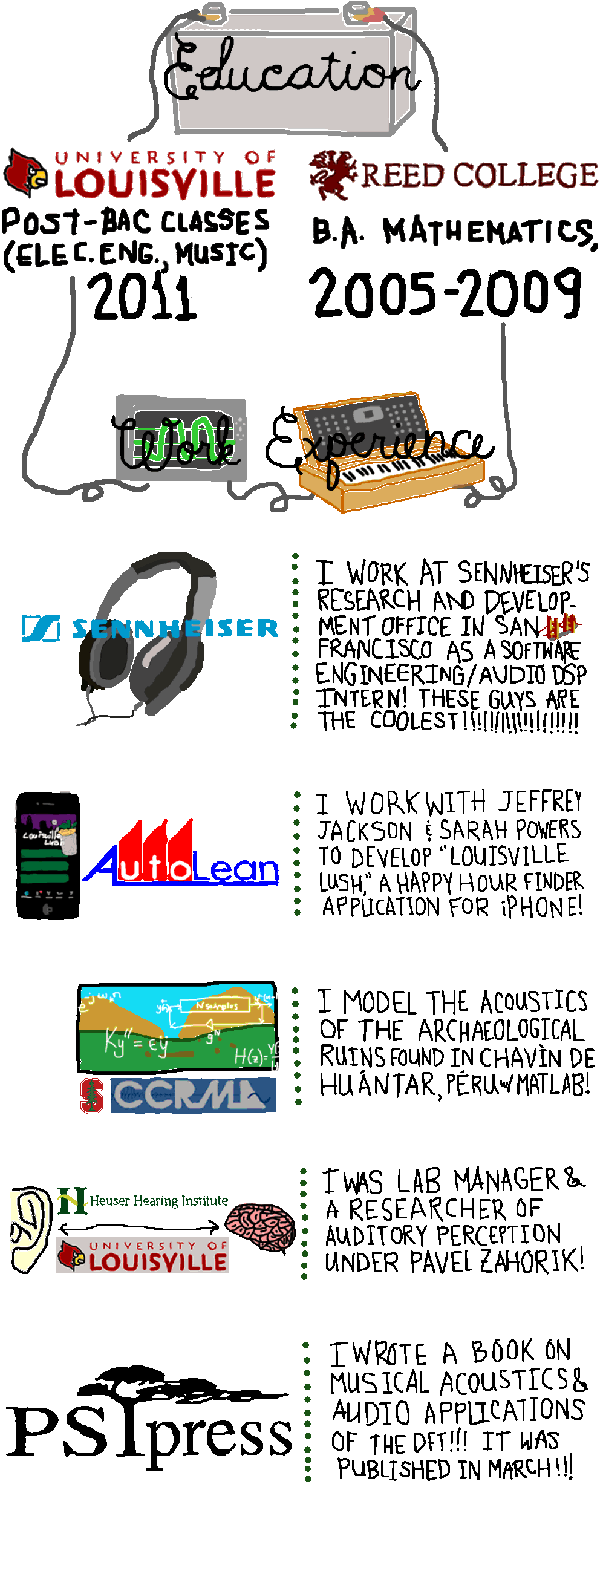 Education
UNIVERSITY OF
LOUISVILLE
POST-BAC CLASSES
(ELEC. ENG., MUSIC)
2011
REED COLLEGE
B.A. MATHEMATICS,
2005-2009
Work Experience
SENNHEISER
I WORK AT SENNHEISER'S
RESEARCH AND DEVELOP-
MENT OFFICE IN SAN
FRANCISCO AS A SOFTWARE
ENGINEERING/AUDIO DSP
INTERN! THESE GUYS ARE
THE COOLEST!!!!!!!!!!!!!!!!!!
Louisville
Lush
AutoLean
I WORK WITH JEFFREY
JACKSON & SARAH POWERS
TO DEVELOP "LOUISVILLE
LUSH," A HAPPY HOUR FINDER
APPLICATION FOR iPHONE!
N samples
Ky" = ϵÿ
H(z)=
CCRMA
I MODEL THE ACOUSTICS
OF THE ARCHAEOLOGICAL
RUINS FOUND IN CHAVÌN DE
HUÁNTAR, PÉRU w/ MATLAB!
H Heuser Hearing Institute
UNIVERSITY OF
LOUISVILLE
I WAS LAB MANAGER &
A RESEARCHER OF
AUDITORY PERCEPTION
UNDER PAVEL ZAHORIK!
PSIpress
I WROTE A BOOK ON
MUSICAL ACOUSTICS &
AUDIO APPLICATIONS
OF THE DFT!!! IT WAS
PUBLISHED IN MARCH!!!